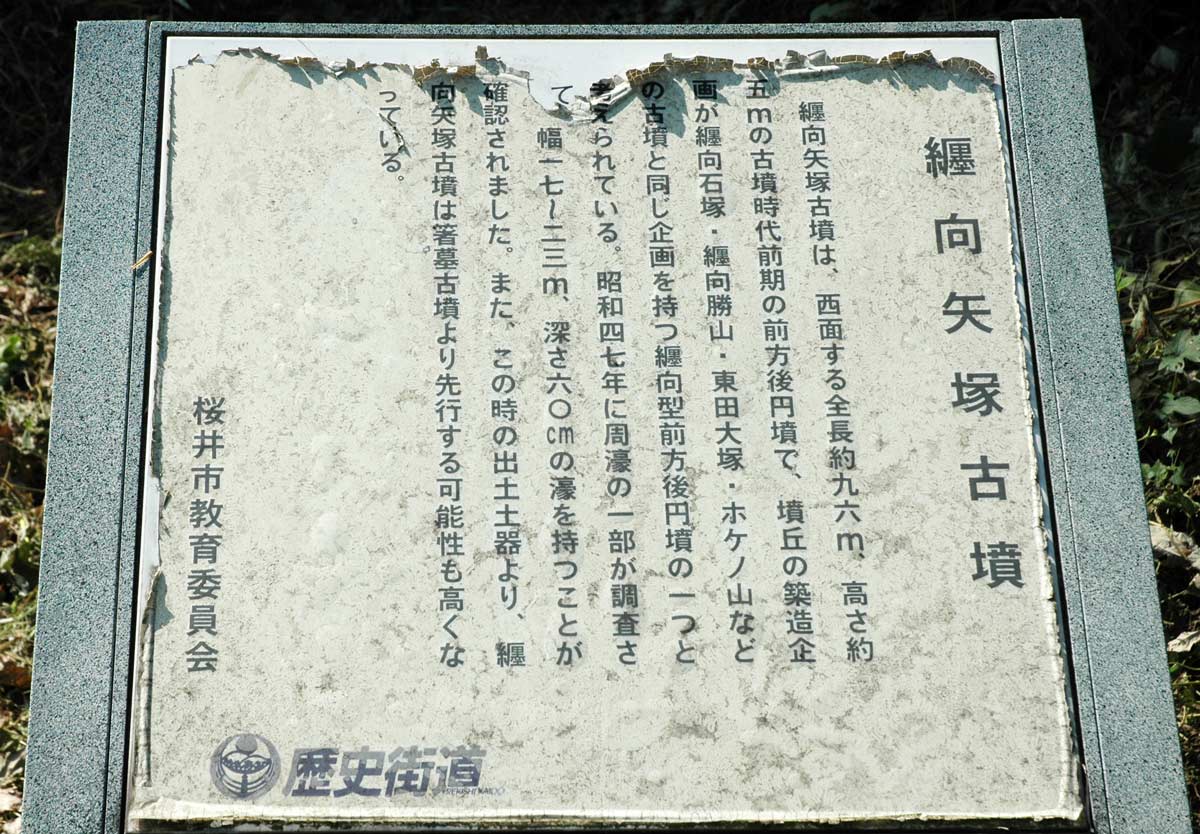 纒向矢塚古墳
纒向矢塚古墳は、西面する全長約九六m、高さ約
五mの古墳時代前期の前方後円墳で、墳丘の築造企
画が纒向石塚・纒向勝山・東田大塚・ホケノ山など
の古墳と同じ企画を持つ纒向型前方後円墳の一つと
考えられている。昭和四七年に周濠の一部が調査さ
て、幅一七〜二三m、深さ六〇cmの濠を持つことが
確認されました。また、この時の出土土器より、纒
向矢塚古墳は箸墓古墳より先行する可能性も高くな
っている。
桜井市教育委員会
歴史街道
REKISHI KAIDO